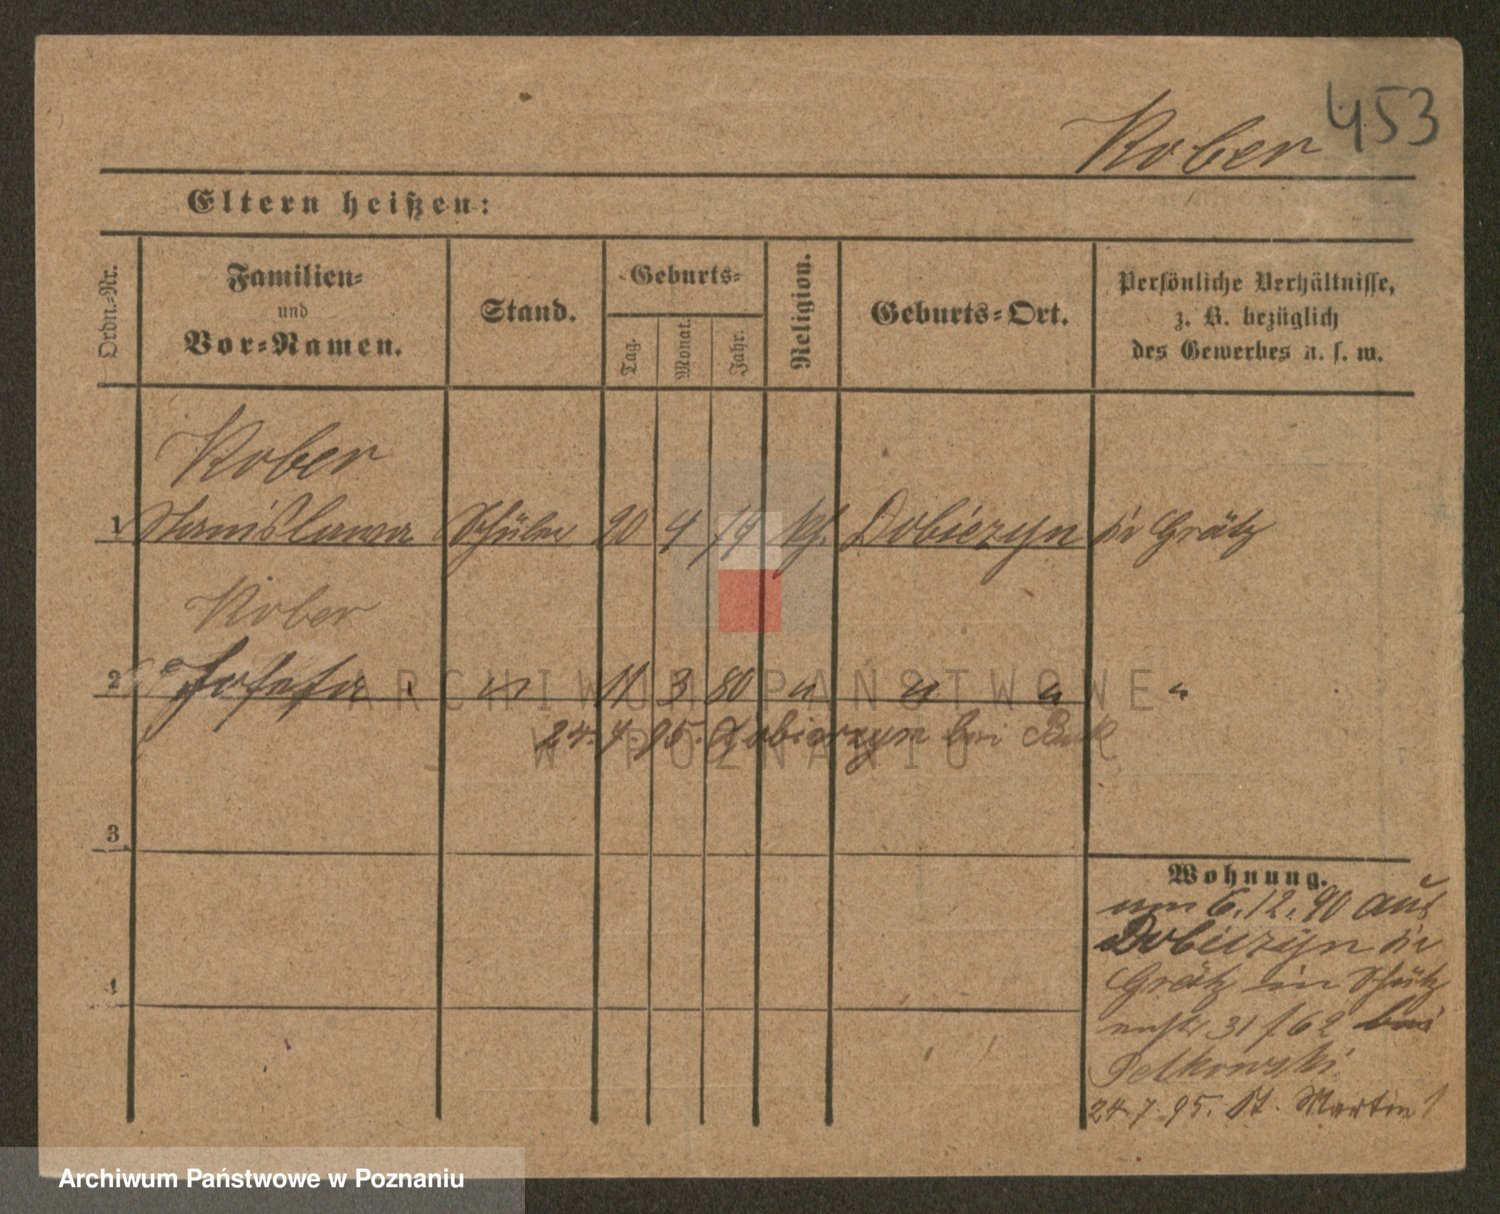 453
Kober
Eltern heißen:
Ordn.-Nr.
Familien-
und
Vor-Namen.
Stand.
Geburts-
Tag.
Monat.
Jahr.
Religion.
Geburts-Ort.
Persönliche Verhältnisse,
z. B. bezüglich
des Gewerbes u. s. w.
Kober
1 Stanislawa Schüler 20 4 79 kh. Dobiezyn Kr Grätz
Kober
2 Josefa " 11 3 80 " " " "
24.7.95. Dobiezyn bei Buk
3
4
Wohnung.
am 6.12.90 aus
Dobiezyn Kr
Grätz in Schütz
enstr 31/62 bei
Petkowski
24.7.95. St. Martin 1
ARCHIWUM PAŃSTWOWE
W POZNANIU
Archiwum Państwowe w Poznaniu